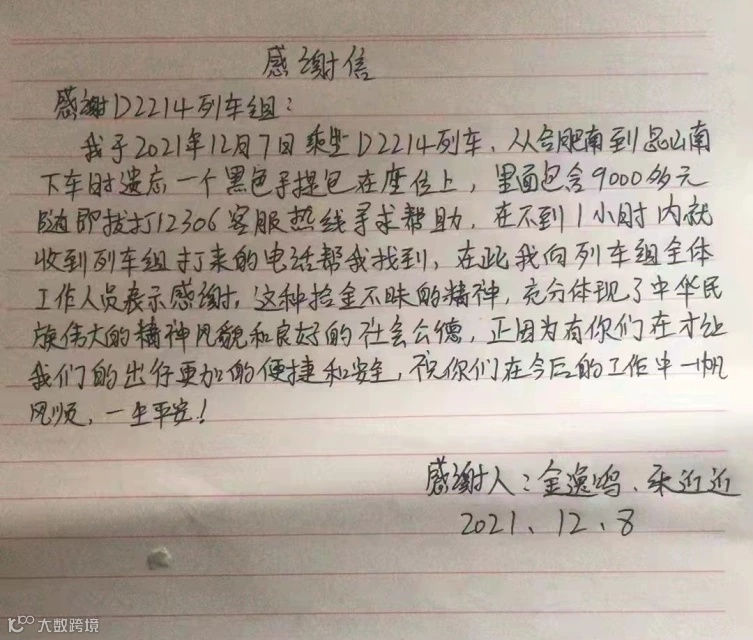 感谢信
感谢D2214列车组：
我于2021年12月7日乘坐D2214列车，从合肥南到昆山南
下车时遗忘一个黑色手提包在座位上，里面包含9000多元
随即拨打12306客服热线寻求帮助，在不到1小时内就
收到列车组打来的电话帮我找到，在此我向列车组全体
工作人员表示感谢，这种拾金不昧的精神，充分体现了中华民
族伟大的精神风貌和良好的社会公德，正因为有你们在才让
我们的出行更加的便捷和安全，祝你们在今后的工作中一帆
风顺，一生平安！
感谢人：金逸鸣、朱近近
2021、12、8
大数跨境